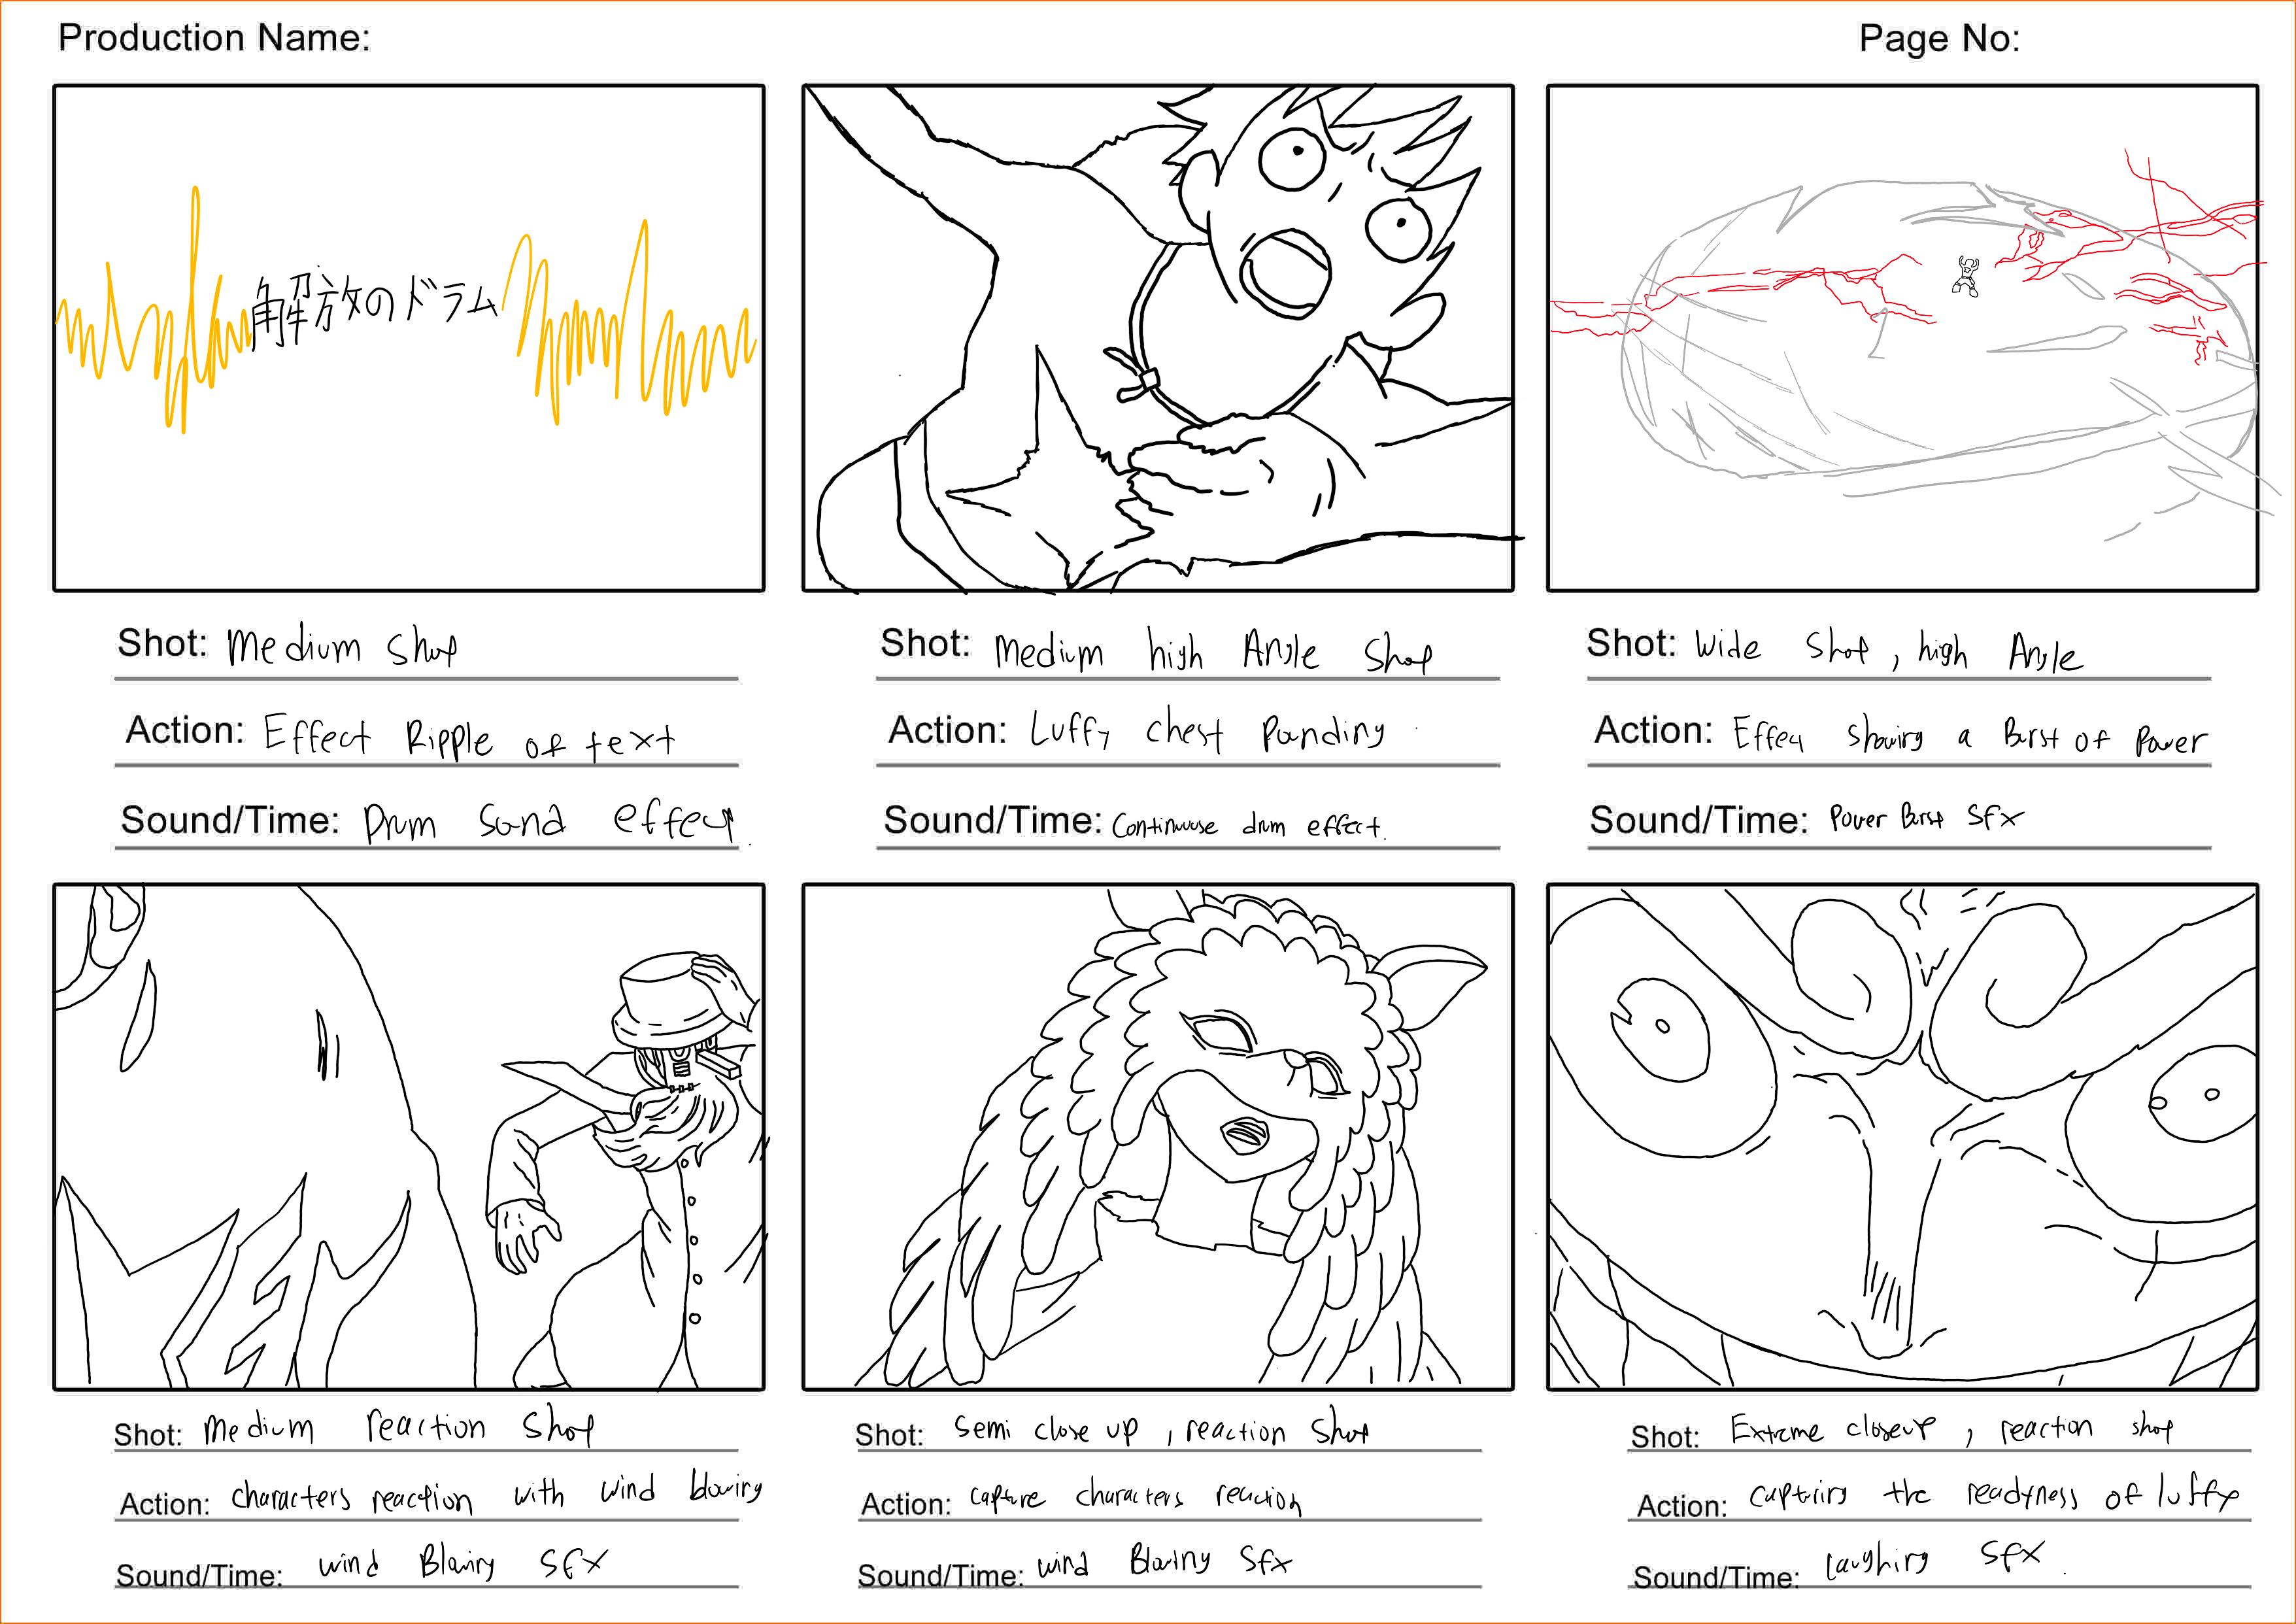 Production Name:
Page No:
解放のドラム
Shot: Medium shot
Action: Effect Ripple of text
Sound/Time: Drum sand effect.
Shot: Medium high Angle shot
Action: Luffy chest Panding
Sound/Time: Continuouse drum effect.
Shot: Wide shot, high Angle
Action: Effect showing a Burst of Power
Sound/Time: Power Burst SFX
Shot: Medium reaction shot
Action: characters reaction with wind blowing
Sound/Time: wind Blowing SFX
Shot: Semi close up, reaction shot
Action: capture characters reaction
Sound/Time: wind Blowing SFX
Shot: Extreme closeup, reaction shot
Action: capturing the readyness of luffy
Sound/Time: laughing SFX.